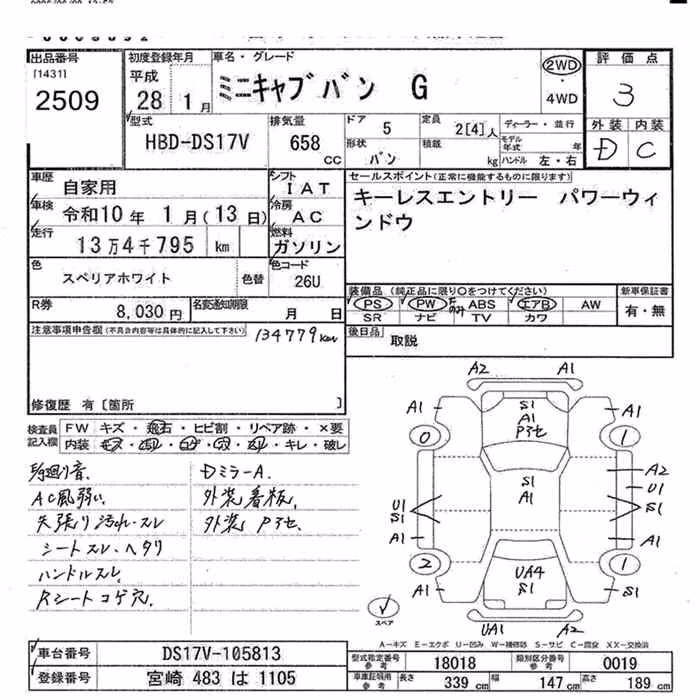 出品番号
[1431]
2509
初度登録年月
平成
28 1月
車名・グレード
ミニキャブバン G
2WD
・
4WD
評価点
3
外装 内装
D C
型式
HBD-DS17V
排気量
658
cc
ドア 5
形状 バン
定員 2[4]人
積載 kg
ディーラー・並行
モデル年式 年
ハンドル 左・右
車歴 自家用
シフト IAT
車検 令和10年 1月(13日)
冷房 AC
走行 13万4千795 km
燃料 ガソリン
色 スペリアホワイト 色替
色コード 26U
R券 8,030円
名変通知期限 月 日
セールスポイント(正常に機能するものに限ります)
キーレスエントリー パワーウィ
ンドウ
装備品(純正品に限り○をつけてください)
PS PW ABS エアB AW
SR ナビ TV カワ
新車保証書
有・無
後日品 取説
注意事項申告欄(不具合内容等は具体的に記入して下さい)
134779km
修復歴 有〔箇所 〕
検査員
記入欄
FW キズ・飛石・ヒビ割・リペア跡・×要
内装・キズ・・コゲ・穴・・キレ・破レ
AC風弱い
天張り汚れ・スレ
シートスレ、ヘタリ
ハンドルスレ
Rシートコゲ穴
DミラーA.
外装看板
外装Pアセ
A2 A1
A1 S1 A1
A1
Pアセ
0 1
S1
A1
A2
U1
U1
S1
S1
A1 A1
2 1
UA4
S1
A1 A1
UA1 A2
スペア
A-キズ E-エクボ U-凹み W-補修跡 S-サビ C-腐食 XX-交換済
車台番号 DS17V-105813
登録番号 宮崎 483 は 1105
型式指定番号
参考
18018
類別区分番号
参考
0019
車庫証明用
参考
長さ 339 cm
幅 147 cm
高さ 189 cm